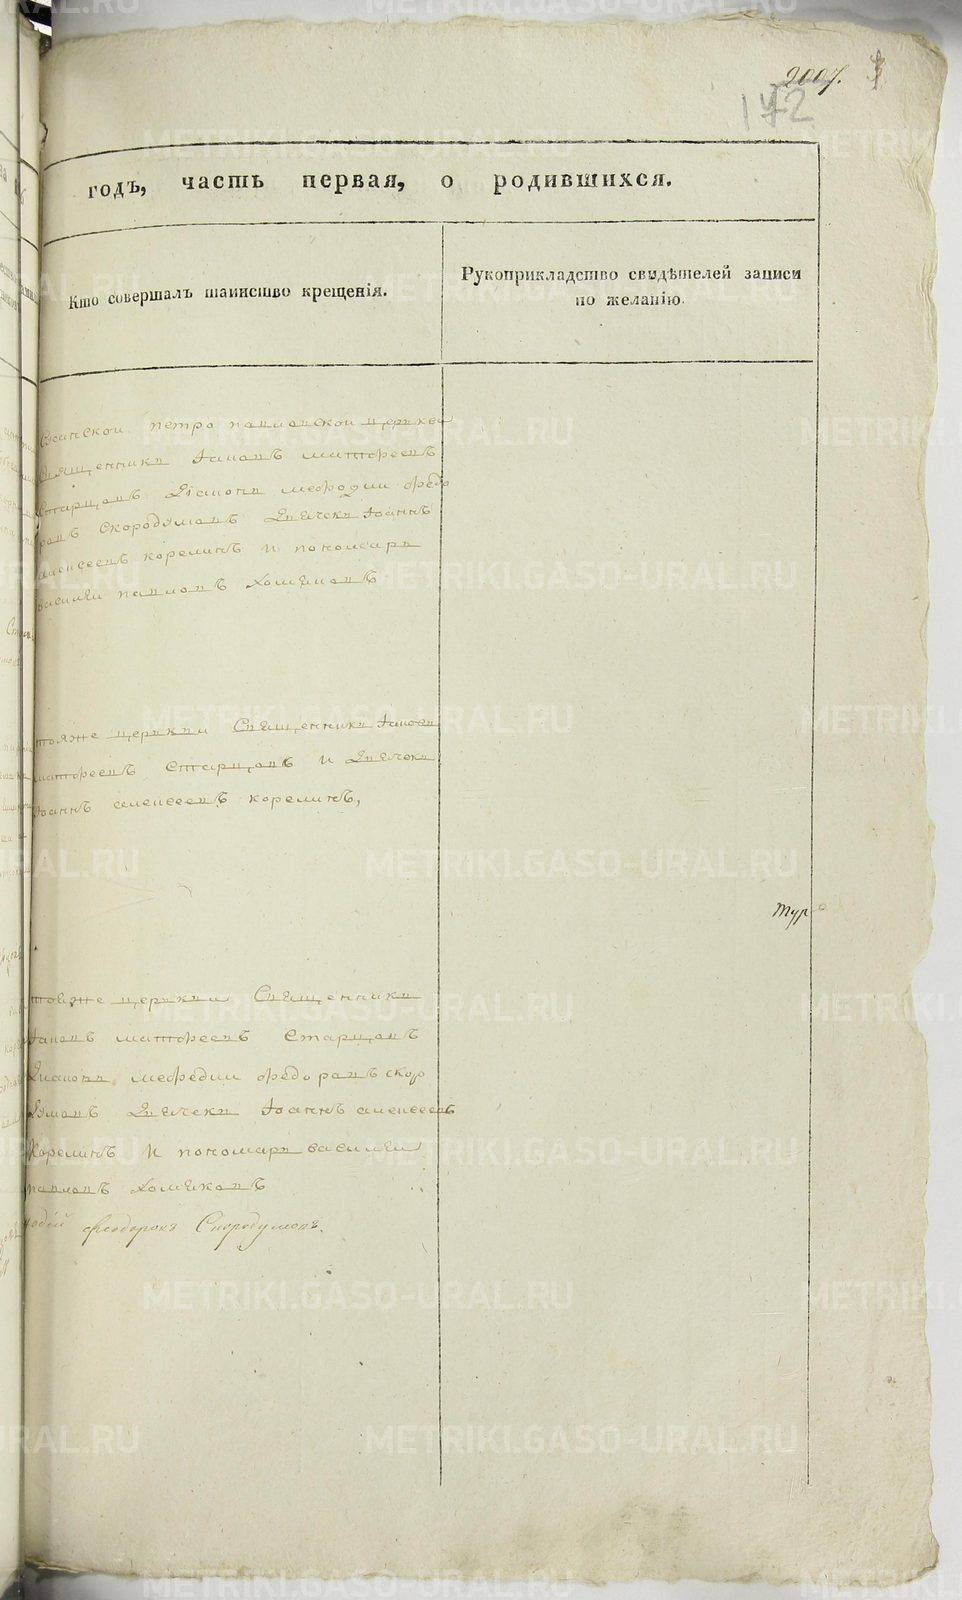 2007. 3
172
годъ, часть первая, о родившихся.
Кто совершалъ таинство крещенія.
Рукоприкладство свидѣтелей записи
по желанію.
петро павловской церкви
Священникъ Іаковъ матфеевъ
Старцовъ Діаконъ мефодии федо
ровъ Скородумовъ Дьячекъ Іоаннъ
алексеевъ корелинъ И пономарь
василеи павловъ Хомяковъ
тояже церкви Священникъ Іаковъ
матфеевъ Старцовъ И Дьячекъ
Іоаннъ алексеевъ корелинъ,
Тур
тояже церкви Священникъ
Іаковъ матфеевъ Старцовъ
Диаконъ мефедии федоровъ скор
думовъ Дьячекъ Іоаннъ алексеевъ
Корелинъ И пономарь василеи
павловъ Хомяковъ
Феодоровъ Скородумовъ.
METRIKI.GASO-URAL.RU